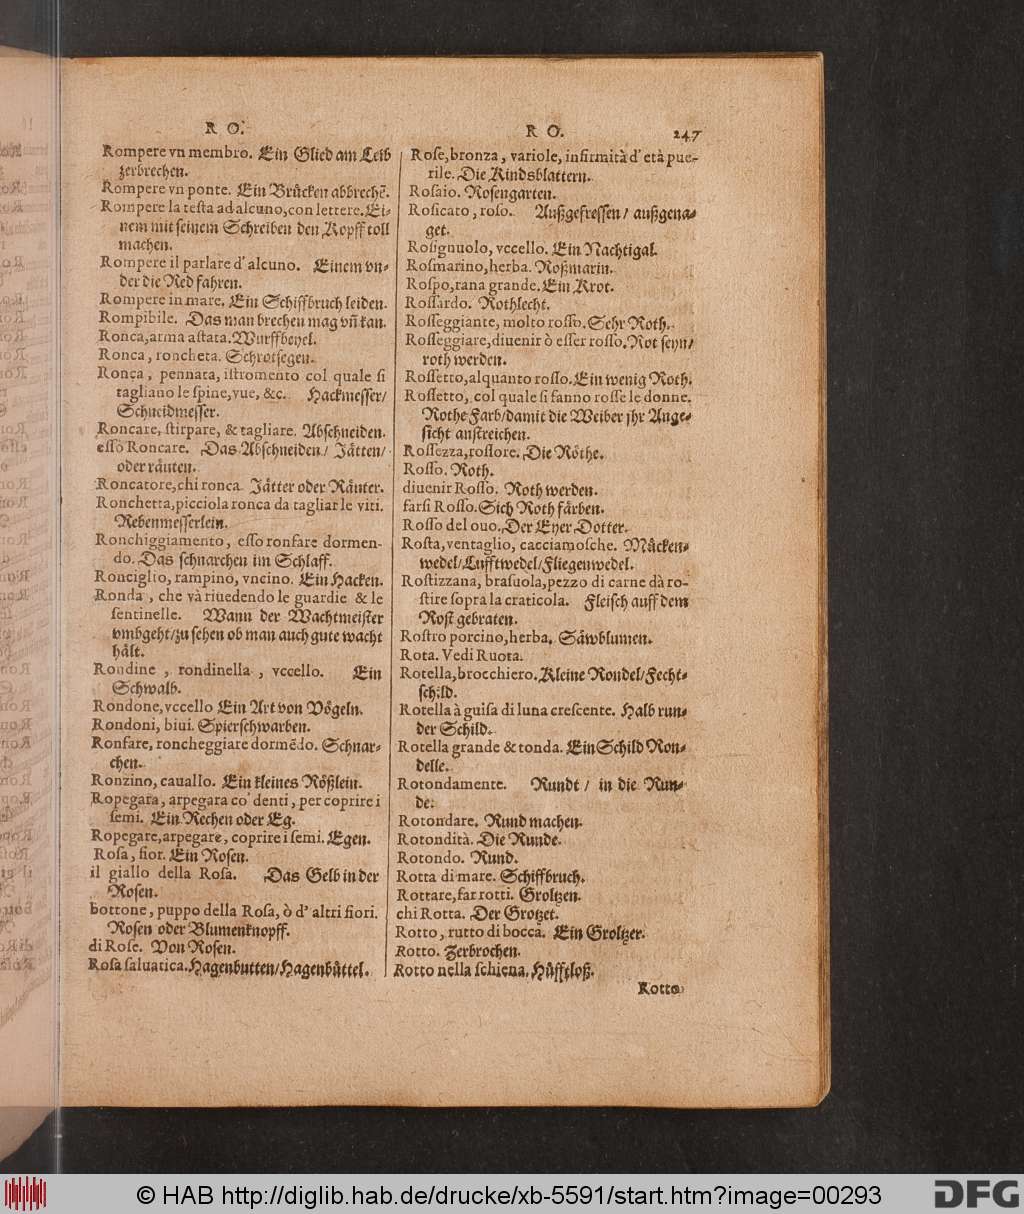 R O.
Rompere vn membro. Ein Glied am Leib
zerbrechen.
Rompere vn ponte. Ein Brůcken abbrechẽ.
Rompere la testa ad alcuno, con lettere. Ei-
nem mit seinem Schreiben den Kopff toll
machen.
Rompere il parlare d' alcuno. Einem vn-
der die Red fahren.
Rompere in mare. Ein Schiffbruch leiden.
Rompibile. Das man brechen mag vñ kan.
Ronca, arma astata. Wurffbeyel.
Ronca, roncheta. Schrotsegen.
Ronca, pennata, istromento col quale si
tagliano le spine, vue, &c. Hackmesser/
Schneidmesser.
Roncare, stirpare, & tagliare. Abschneiden.
esso Roncare. Das Abschneiden/ Jåtten/
oder råuten.
Roncatore, chi ronca. Jåtter oder Råuter.
Ronchetta, picciola ronca da tagliar le viti.
Rebenmesserlein.
Ronchiggiamento, esso ronfare dormen-
do. Das schnarchen im Schlaff.
Ronciglio, rampino, vncino. Ein Hacken.
Ronda, che và riuedendo le guardie & le
sentinelle. Wann der Wachtmeister
vmbgeht/ zu sehen ob man auch gute wacht
hålt.
Rondine, rondinella, vccello. Ein
Schwalb.
Rondone, vccello Ein Art von Vögeln.
Rondoni, biui. Spierschwarben.
Ronfare, roncheggiare dormẽdo. Schnar-
chen.
Ronzino, cauallo. Ein kleines Rößlein.
Ropegara, arpegara co' denti, per coprire i
semi. Ein Rechen oder Eg.
Ropegare, arpegare, coprire i semi. Egen.
Rosa, fior. Ein Rosen.
il giallo della Rosa. Das Gelb in der
Rosen.
bottone, puppo della Rosa, ò d' altri fiori.
Rosen oder Blumenknopff.
di Rose. Von Rosen.
Rosa saluatica. Hagenbutten/ Hagenbůttel.
R O. 247
Rose, bronza, variole, infirmità d' età pue-
rile. Die Kindsblattern.
Rosaio. Rosengarten.
Rosicato, roso. Außgefressen/ außgena-
get.
Rosignuolo, vccello. Ein Nachtigal.
Rosmarino, herba. Roßmarin.
Rospo, rana grande. Ein Krot.
Rossardo. Rothlecht.
Rosseggiante, molto rosso. Sehr Roth.
Rosseggiare, diuenir ò esser rosso. Rot seyn/
roth werden.
Rossetto, alquanto rosso. Ein wenig Roth.
Rossetto, col quale si fanno rosse le donne.
Rothe Farb/ damit die Weiber jhr Ange-
sicht anstreichen.
Rossezza, rossore. Die Röthe.
Rosso. Roth.
diuenir Rosso. Roth werden.
farsi Rosso. Sich Roth fårben.
Rosso del ouo. Der Eyer Dotter.
Rosta, ventaglio, cacciamosche. Můcken-
wedel/ Lufftwedel/ Fliegenwedel.
Rostizzana, brasuola, pezzo di carne dà ro-
stire sopra la craticola. Fleisch auff dem
Rost gebraten.
Rostro porcino, herba. Såwblumen.
Rota. Vedi Ruota.
Rotella, brocchiero. Kleine Rondel/ Fecht-
schild.
Rotella à guisa di luna crescente. Halb run-
der Schild.
Rotella grande & tonda. Ein Schild Ron-
delle.
Rotondamente. Rundt / in die Run-
de.
Rotondare. Rund machen.
Rotondità. Die Runde.
Rotondo. Rund.
Rotta di mare. Schiffbruch.
Rottare, far rotti. Groltzen.
chi Rotta. Der Grotzet.
Rotto, rutto di bocca. Ein Groltzer.
Rotto. Zerbrochen.
Rotto nella schiena. Hůfftloß.
Rotto
© HAB http://diglib.hab.de/drucke/xb-5591/start.htm?image=00293
DFG